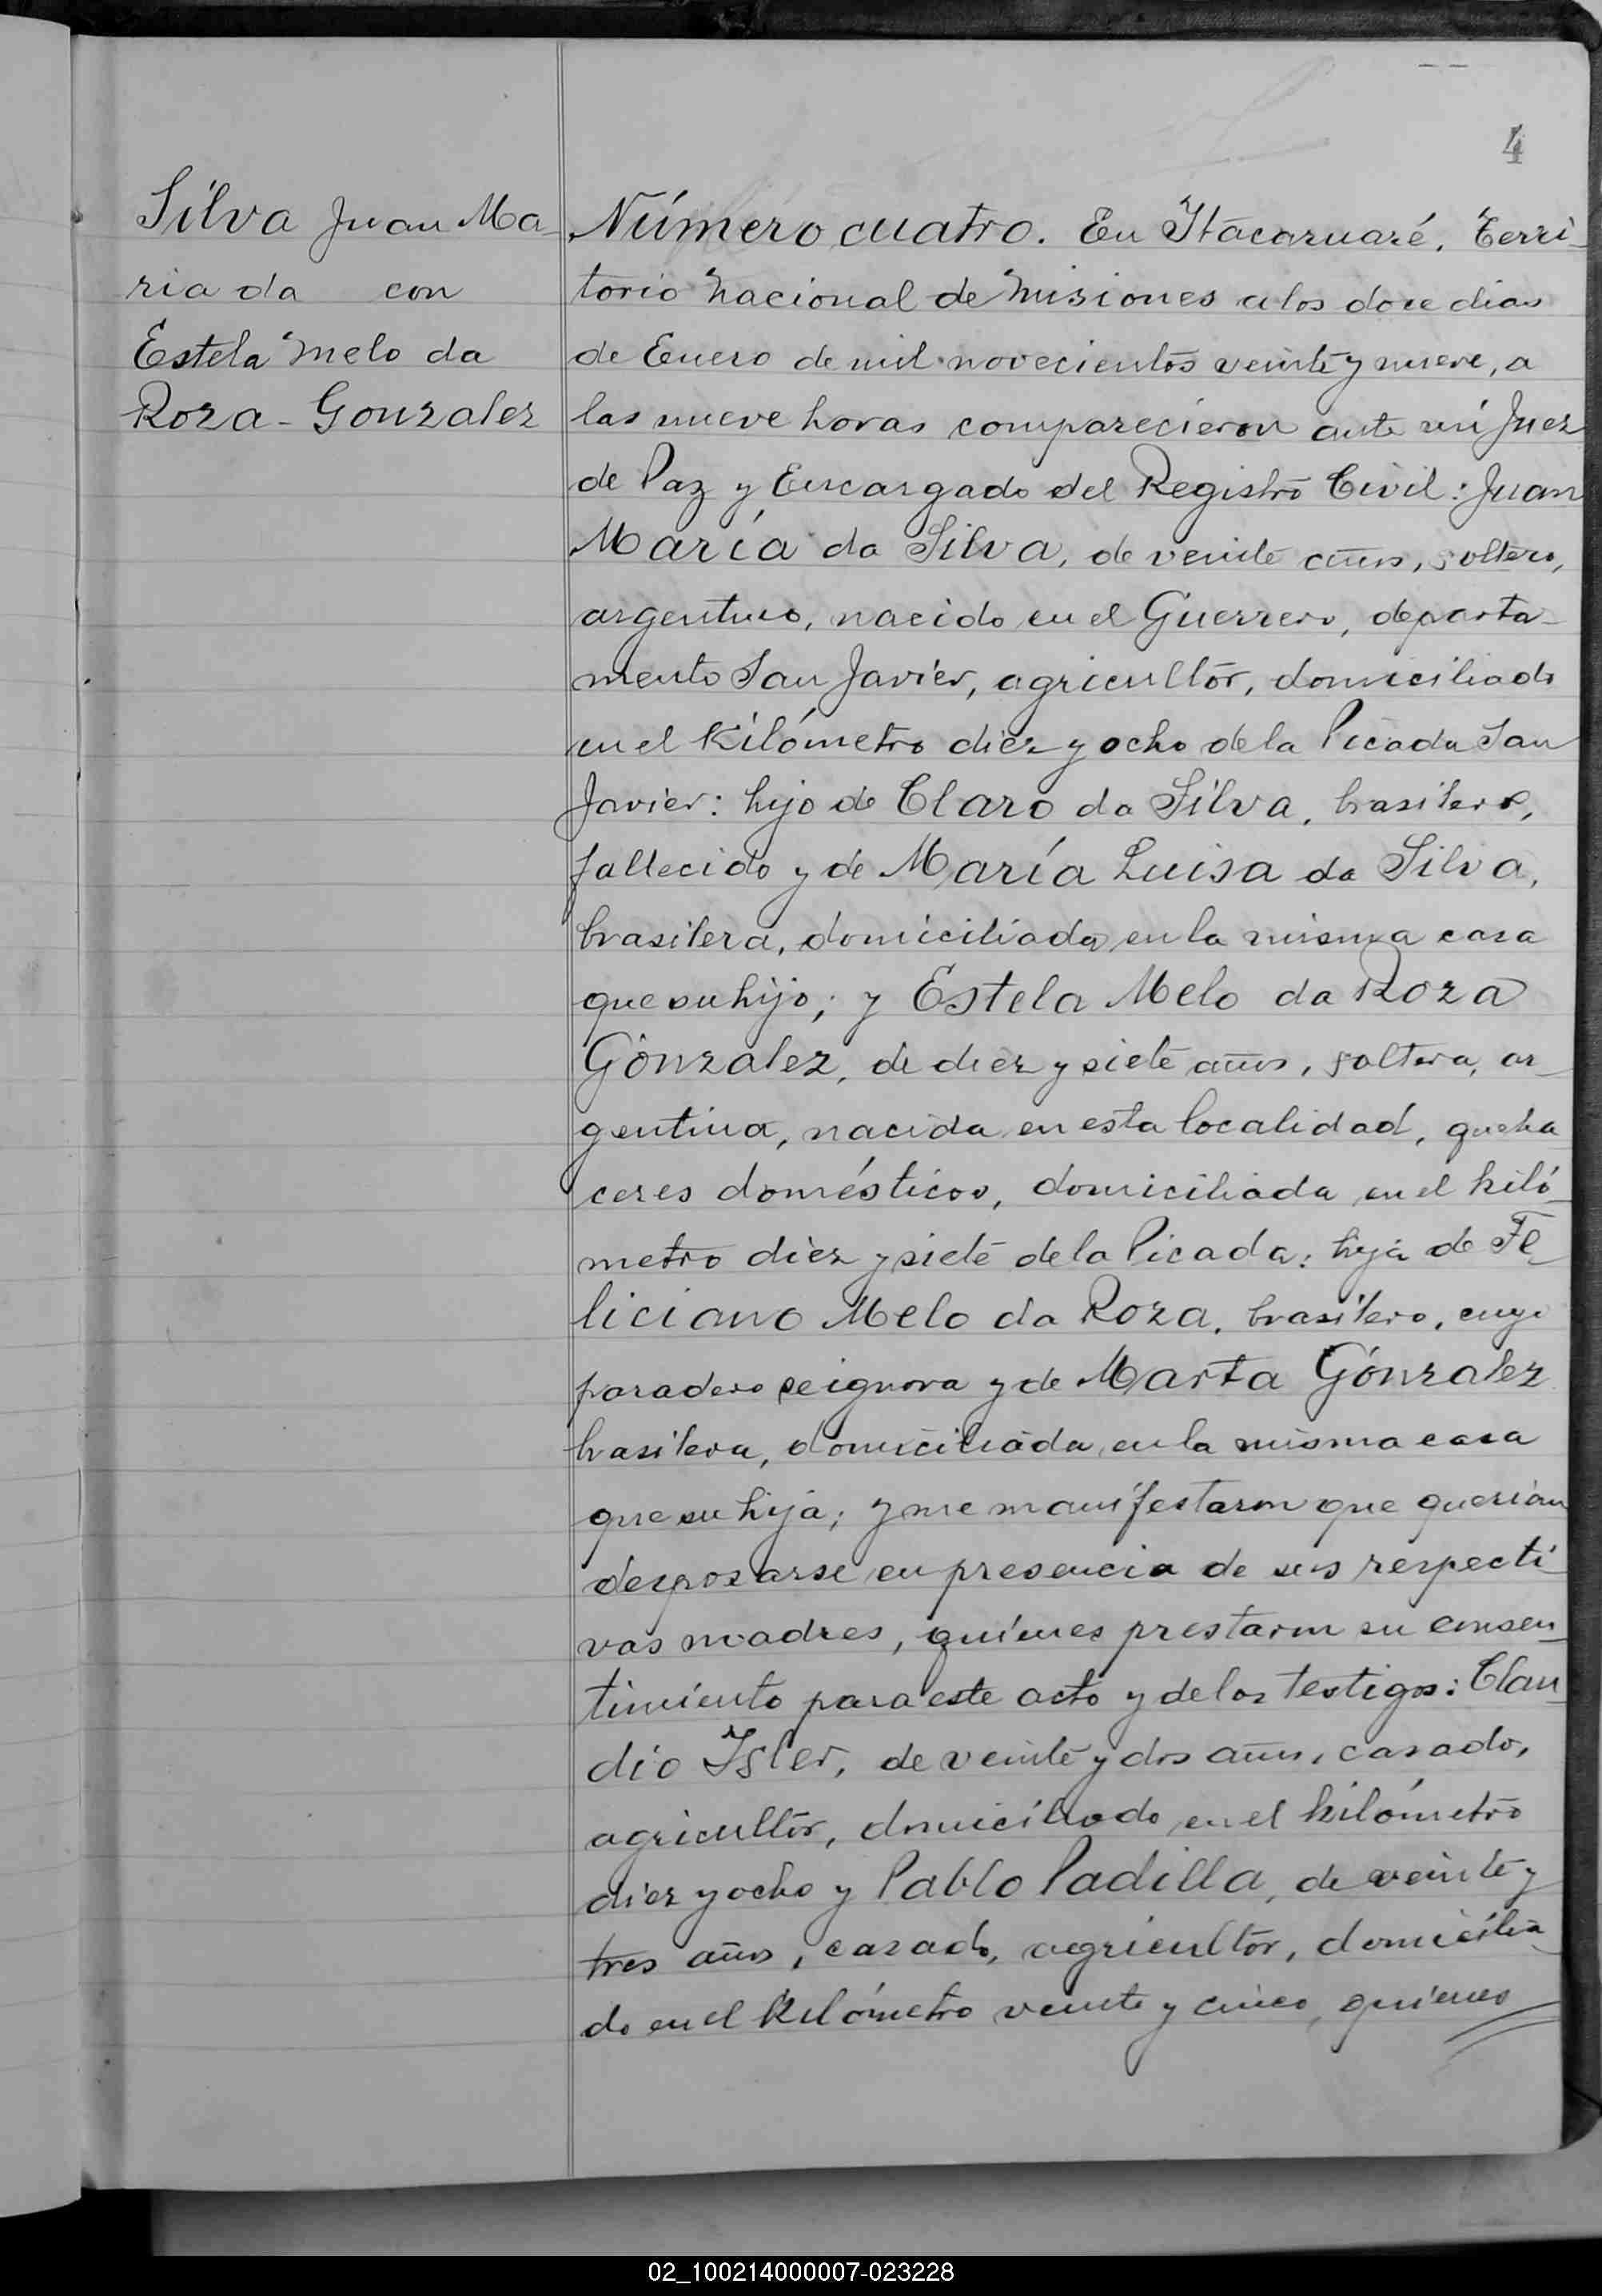 4
Silva Juan Ma-
ria da con
Estela Melo da
Roza - Gonzalez
Número cuatro. En Itacaruaré, Terri-
torio Nacional de Misiones a los doce dias
de Enero de mil novecientos veinte y nueve, a
las nueve horas comparecieron ante mi Juez
de Paz y Encargado del Registro Civil: Juan
María da Silva, de veinte años, soltero,
argentino, nacido en el Guerrero, departa-
mento San Javier, agricultor, domiciliado
en el Kilómetro diez y ocho de la Picada San
Javier: hijo de Claro da Silva, brasilero,
fallecido y de María Luisa da Silva,
brasilera, domiciliada en la misma casa
que su hijo; y Estela Melo da Roza
Gónzalez, de diez y siete años, soltera, ar-
gentina, nacida en esta localidad, queha
ceres domésticos, domiciliada en el kiló-
metro diez y siete de la Picada: hija de Fe-
liciano Melo da Roza, brasilero, cuyo
paradero se ignora y de Marta Gónzalez
brasilera, domiciliada en la misma casa
que su hija; y me manifestaron que querian
desposarse en presencia de sus respecti-
vas madres, quienes prestaron su consen-
timiento para este acto y de los testigos: Clau-
dio Isler, de veinte y dos años, casado,
agricultor, domiciliado en el kilómetro
diez y ocho y Pablo Padilla, de veinte y
tres años, casado, agricultor, domicilia-
do en el Kilómetro veinte y cinco, quienes
02_100214000007-023228